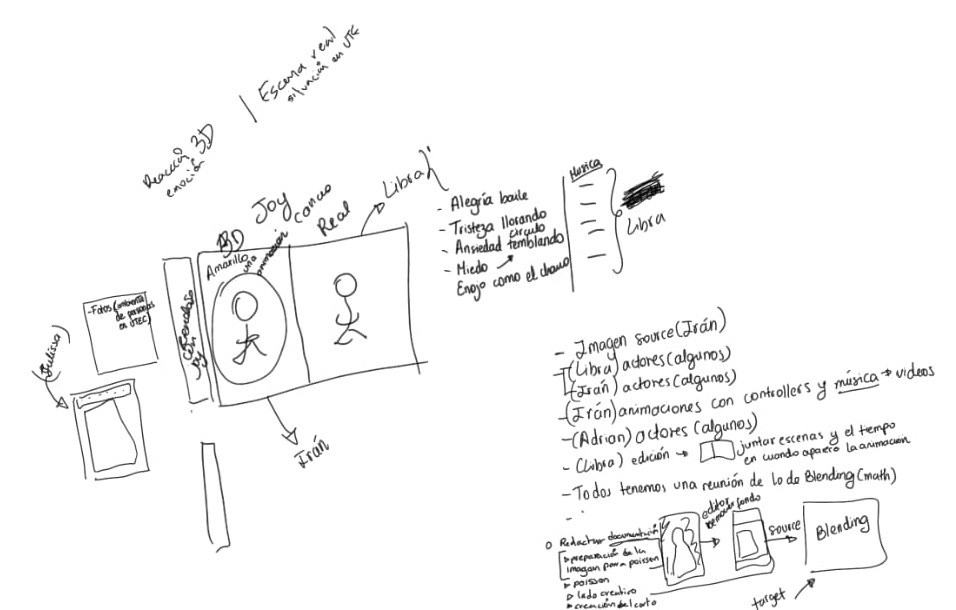 Reacción 3D
emoción
| Escena real
situación en UTEC
Joy
3D
Amarillo
una
animación
Real
Libra
- Fotos (ambiente
de personas
en UTEC)
con
Joy
Irán
- Alegría baile
- Tristeza llorando
círculo
- Ansiedad temblando
- Miedo
Enojo como el chavo
Musica
Libra
- Imagen source (Irán)
- (Libra) actores (algunos)
- (Irán) actores (algunos)
- (Irán) animaciones con controllers y música → videos
- (Adrian) actores (algunos)
- (Libra) edición → juntar escenas y el tiempo
en cuando aparece la animación
- Todos tenemos una reunión de lo de Blending (math)
-
Redactar documentación
preparación de la
imagen para poisson
poisson
lado creativo
creación del corto
editor
remover fondo
source
Blending
target